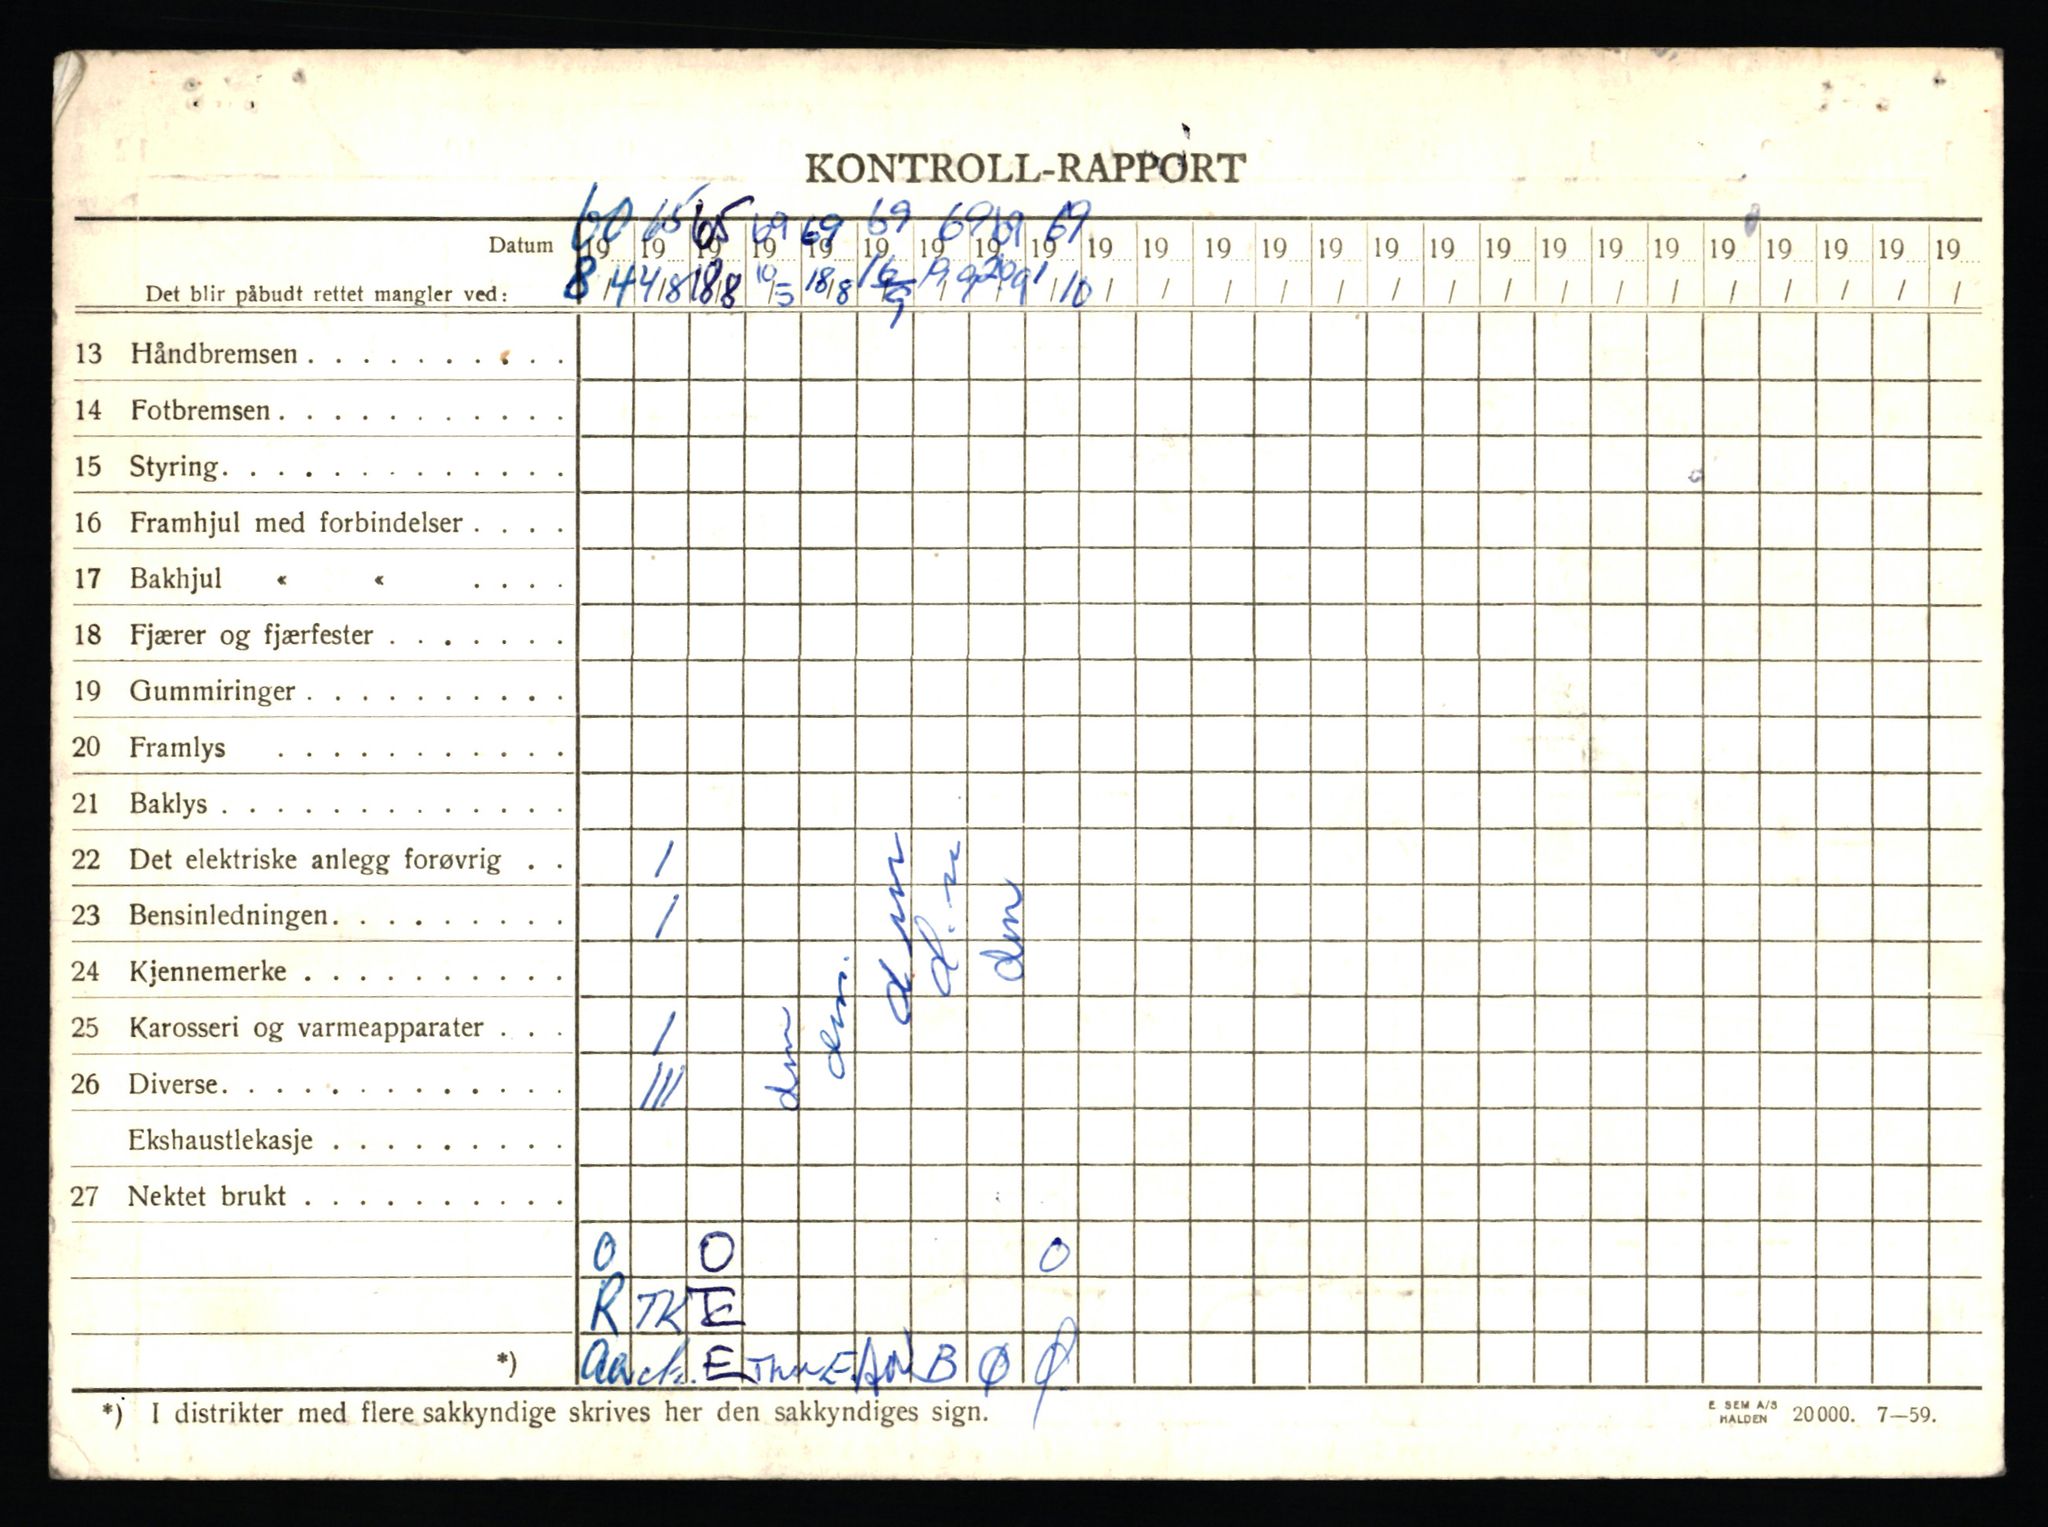 KONTROLL-RAPPORT
60 65 65 69 69 69 69 69 69
Datum 19 19 19 19 19 19 19 19 19 19 19 19 19 19 19 19 19 19 19 19 19 19 19 19 19
Det blir påbudt rettet mangler ved: 8/4 4/8 18/8 10/5 18/8 16/9 19/9 20/9 1/10 / / / / / / / / / / / / / / / /
13 Håndbremsen . . . . . . . . . .
14 Fotbremsen . . . . . . . . . . .
15 Styring. . . . . . . . . . . . .
16 Framhjul med forbindelser . . . .
17 Bakhjul « « . . . .
18 Fjærer og fjærfester . . . . . . .
19 Gummiringer . . . . . . . . . .
20 Framlys . . . . . . . . . . .
21 Baklys . . . . . . . . . . . . .
22 Det elektriske anlegg forøvrig . . /
23 Bensinledningen. . . . . . . . . /
24 Kjennemerke . . . . . . . . . .
25 Karosseri og varmeapparater . . . /
26 Diverse. . . . . . . . . . . . . ///
dm dm. dm d.n dm
Ekshaustlekasje . . . . . . . . .
27 Nektet brukt . . . . . . . . . .
0 0 0
R TK E
*) E B Ø Ø
*) I distrikter med flere sakkyndige skrives her den sakkyndiges sign.
E. SEM A/S HALDEN 20000. 7—59.